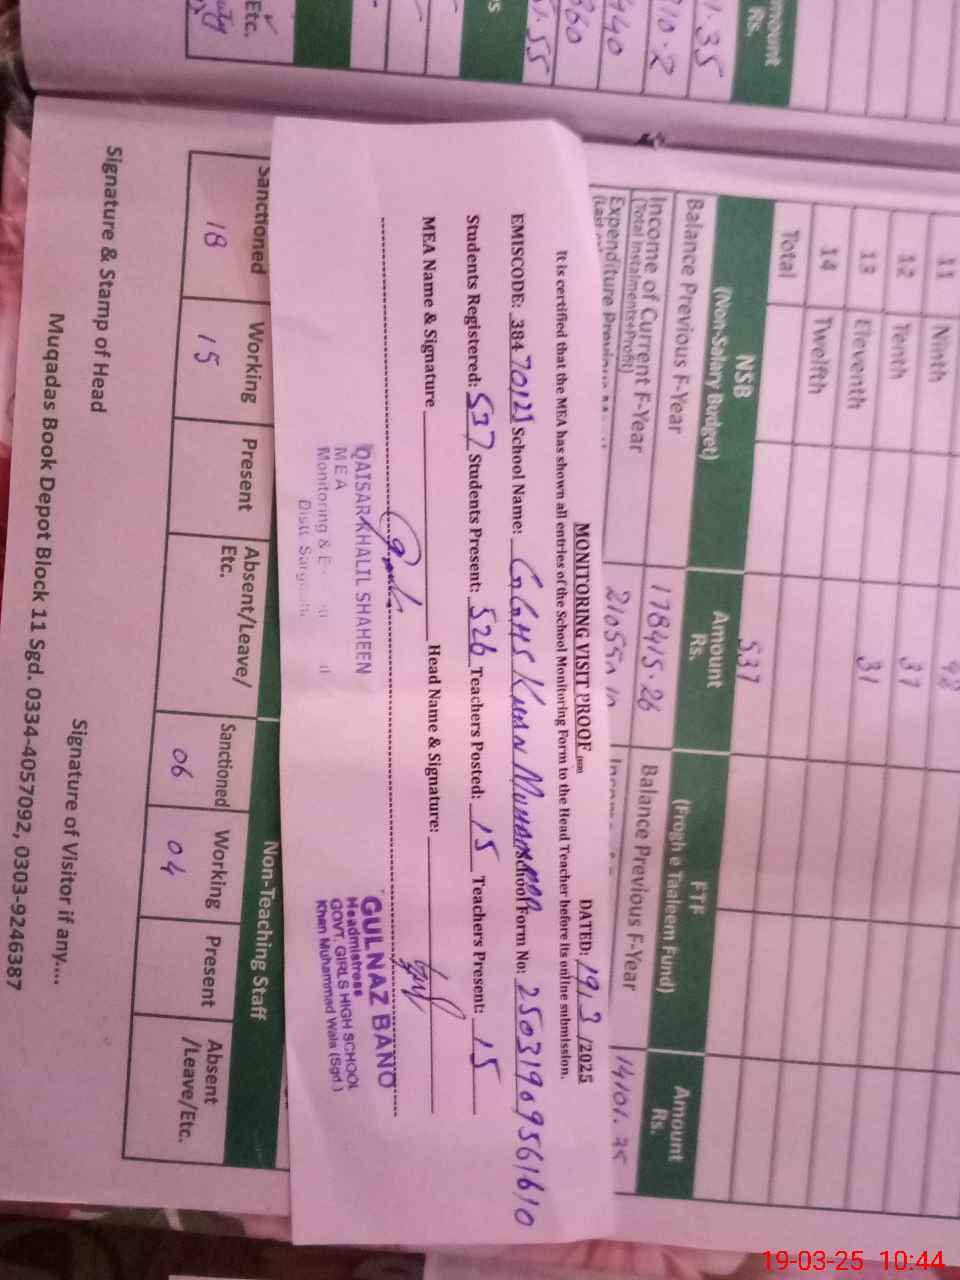 Amount
Rs.
Etc.
11 Ninth 92
12 Tenth 37
13 Eleventh 31
14 Twelfth
Total 537
NSB
(Non-Salary Budget)
Amount
Rs.
FTF
(Frogh e Taaleem Fund)
Amount
Rs.
Balance Previous F-Year 178415.26 Balance Previous F-Year 14101.35
Income of Current F-Year
(Total Instalments+Profit)
Expenditure Previous
MONITORING VISIT PROOF DATED: 19/3/2025
It is certified that the MEA has shown all entries of the School Monitoring Form to the Head Teacher before its online submission.
EMISCODE: 38470121 School Name: GGHS KHAN MUHAMMAD School Form No: 25031909561610
Students Registered: 537 Students Present: 526 Teachers Posted: 15 Teachers Present: 15
MEA Name & Signature Head Name & Signature:
QAISAR KHALIL SHAHEEN
MEA
Monitoring & E
Distt
GULNAZ BANO
Headmistress
GOVT. GIRLS HIGH SCHOOL
Khan Muhammad Wala (Sgd.)
Non-Teaching Staff
Sanctioned Working Present Absent/Leave/ Etc. Sanctioned Working Present Absent /Leave/Etc.
18 15 06 04
Signature & Stamp of Head Signature of Visitor if any....
Muqadas Book Depot Block 11 Sgd. 0334-4057092, 0303-9246387
19-03-25 10:44